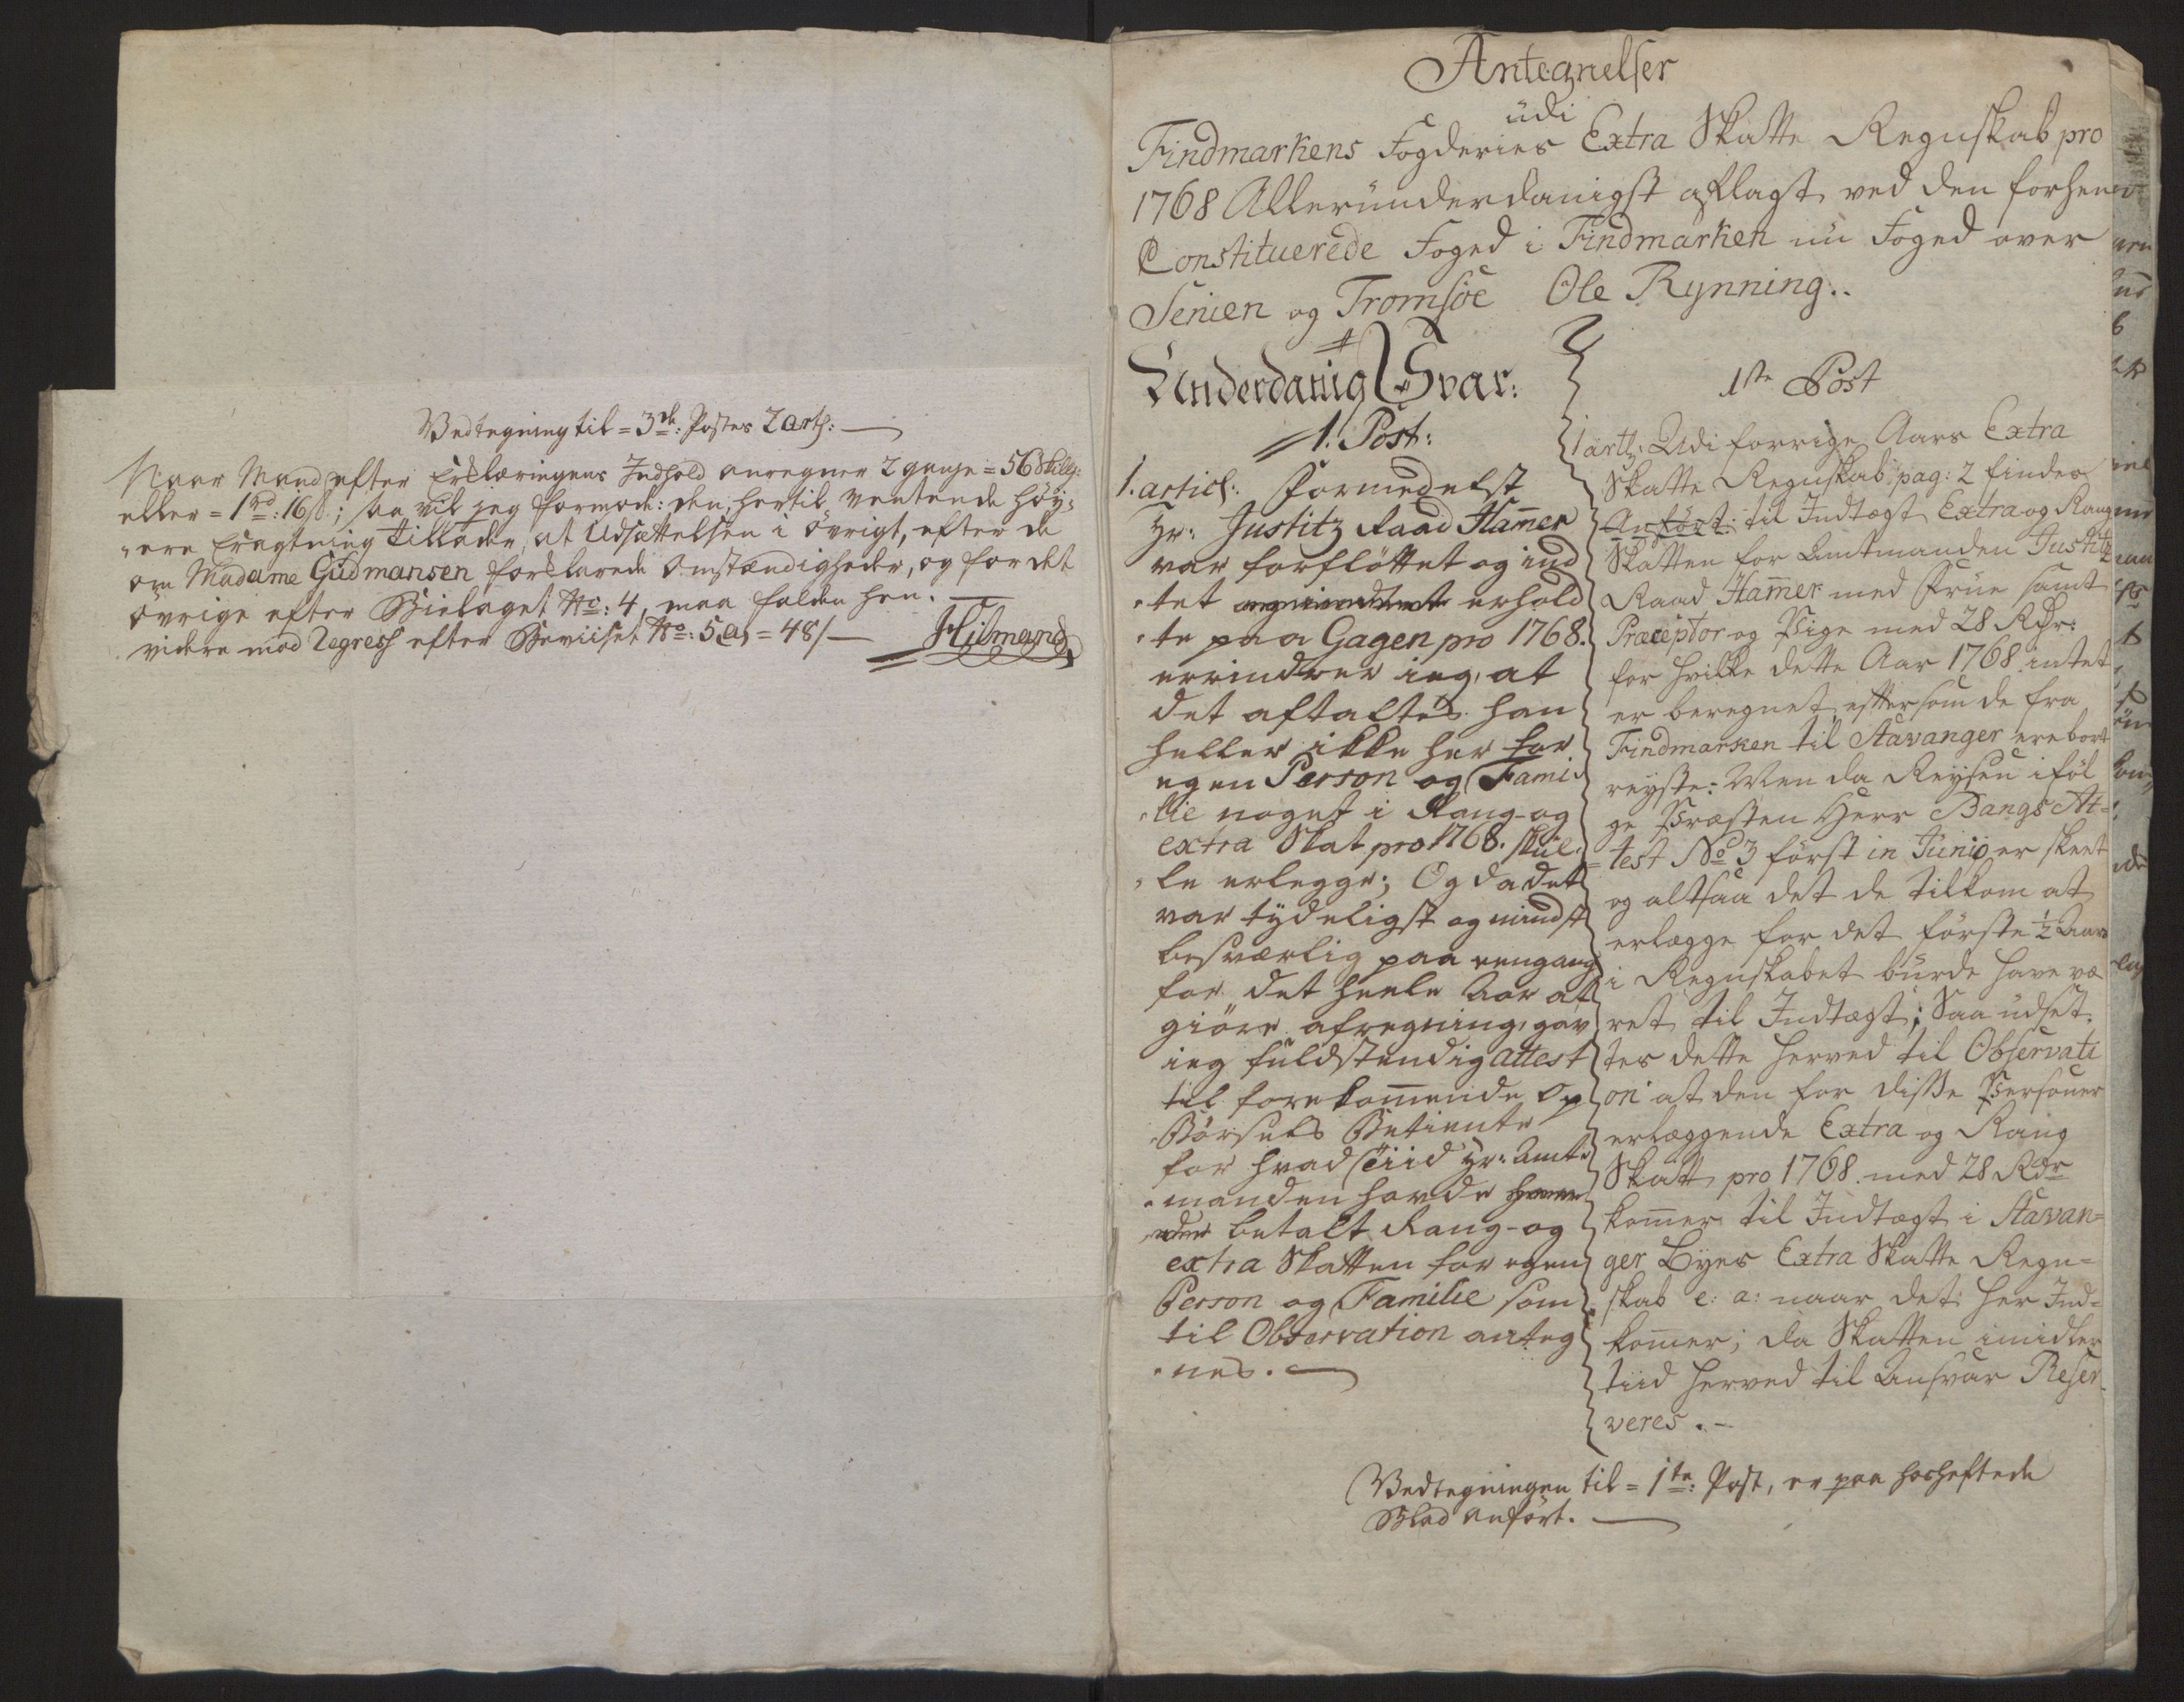 Vedtegning til = 3de: Postes 2 art:
Naar Mand efter Erklæringens Indhold anregner 2 gange = 56 Skillg:
eller = 1rd: 16s; saa vil jeg formode: den, hertil ventende höy-
ere Eragtning tillader, at Udsættelsen i övrigt, efter de
om Madame Gudmansen forklarede Omstændigheder, og for det
övrige efter Bielaget No: 4, maa falde hen.
videre mod Regress efter Beviiset No: 5(a) = 48/—
Hilmand
Antegnelser
udi
Findmarkens Fogderies Extra Skatte Regnskab pro
1768 Alleründerdanigst aflagt ved den forhen
Constituerede Foged i Findmarken nu Foged over
Senien og Tromsöe Ole Rynning..
Underdanig Svar:
1. Post:
1. articl: Formedelst
Hr: Justitz Raad Ham̄er
var forflöttet og ind
tet erhold
te paa Gagen pro 1768.
erindrer ieg, at
det aftaltes han
heller ikke her for
egen Person og Fami-
lie noget i Rang- og
extra Skat pro 1768. skul-
le erlegge; Og da det
var tydeligst og mindst
besværlig paa eengang
for det heele Aar at
giöre afregning, gav
ieg fuldstendig attest
til forekom̄ende Op
Börsels Betiente
for hvad Tiid Hr: Amt-
manden havde
betalt Rang- og
extra Skatten for egen
Person og Familie som
til Observation anteg
nes.
1ste Post
1 art: Udi forrige Aars Extra
Skatte Regnskab pag: 2 findes
Anfört: til Indtægt Extra og Rang
Skatten for Amtmanden Justitz
Raad Ham̄er med Frue samt
Præceptor og Pige med 28 Rdr:
for hvilke dette Aar 1768 intet
er beregnet, eftersom de fra
Findmarken til Stavanger ere bort
reyste: Men da Reysen iföl
ge Præsten Herr Bangs At-
test No 3 först in Junio er skeet
og altsaa det de tilkom at
erlægge for det förste ½ Aar
i Regnskabet burde have væ
ret til Indtægt; Saa udset
tes dette herved til Observati
on at den for disse Personer
erlæggende Extra og Rang
Skatt pro 1768. med 28 Rdr
kom̄er til Indtægt i Stavan-
ger Byes Extra Skatte Regn-
skab e: a: naar det her Ind-
kom̄er; da Skatten imidler
tiid herved til Ansvar Reser-
veres.
Vedtegningen til = 1te: Post, er paa hosheftede
Blad anfört.